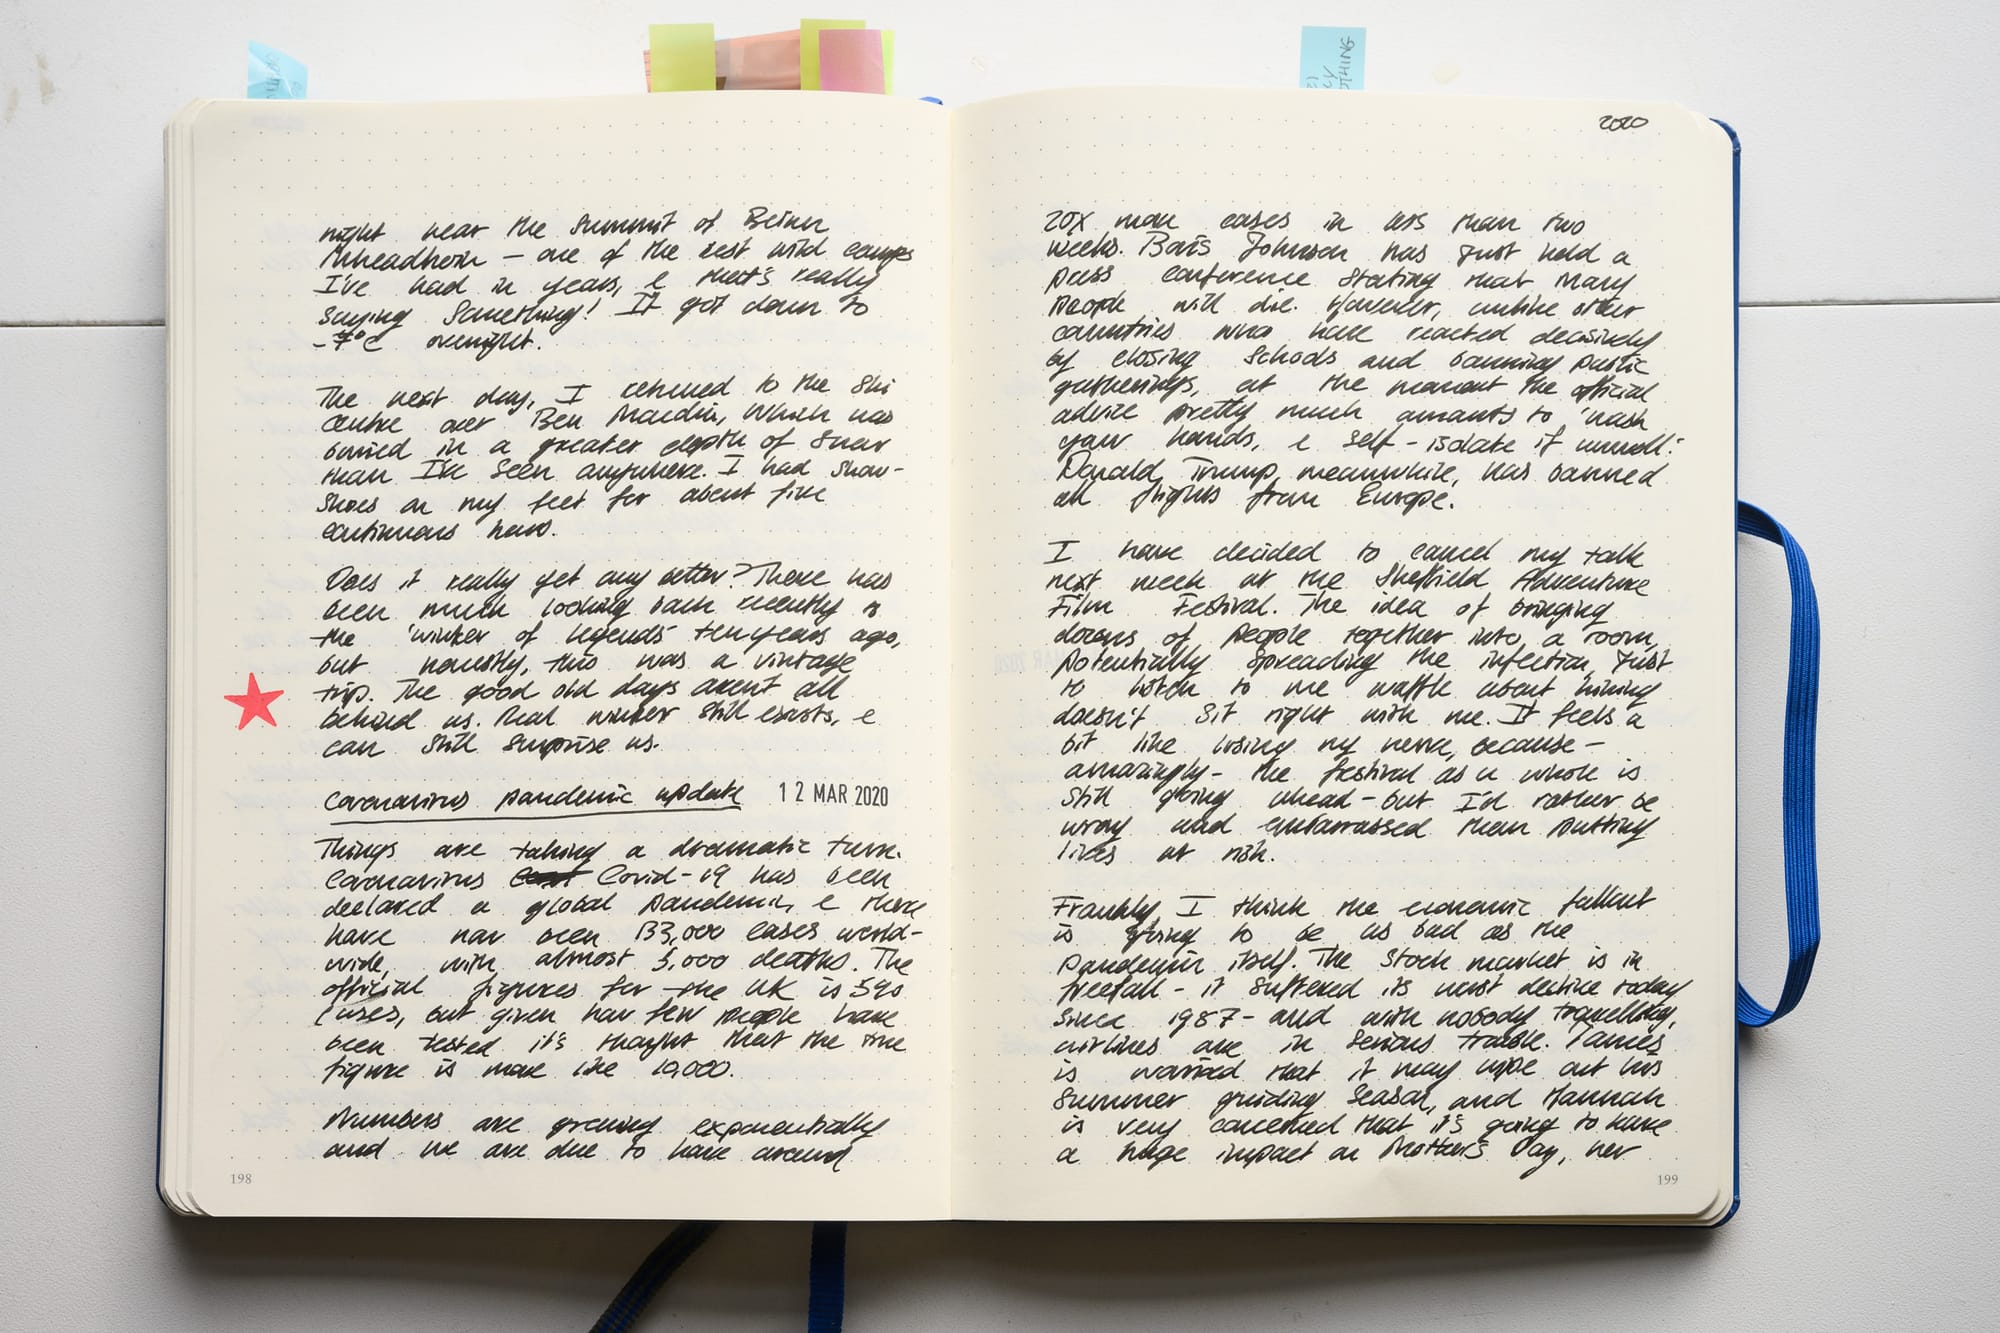 2020
night near the summit of Beinn
Mheadhoin – one of the best wild camps
I've had in years, & that's really
saying something! It got down to
-7°C overnight.
The next day, I returned to the ski
centre over Ben Macdui, which was
buried in a greater depth of snow
than I've seen anywhere. I had snow-
shoes on my feet for about five
continuous hours.
Does it really get any better? There has
been much looking back recently to
the 'winter of legends' ten years ago,
but honestly, this was a vintage
trip. The good old days aren't all
behind us. Real winter still exists, &
can still surprise us.
Coronavirus pandemic update 12 MAR 2020
Things are taking a dramatic turn.
Coronavirus Covid-19 has been
declared a global pandemic, & there
have now been 133,000 cases world-
wide, with almost 5,000 deaths. The
official figures for the UK is 590
cases, but given how few people have
been tested it's thought that the true
figure is more like 10,000.
Numbers are growing exponentially
and we are due to have around
198
20x more cases in less than two
weeks. Boris Johnson has just held a
press conference stating that many
people will die. However, unlike other
countries who have reacted decisively
by closing schools and banning public
gatherings, at the moment the official
advice pretty much amounts to 'wash
your hands, & self-isolate if unwell.'
Donald Trump, meanwhile, has banned
all flights from Europe.
I have decided to cancel my talk
next week at the Sheffield Adventure
Film Festival. The idea of bringing
dozens of people together into a room,
potentially spreading the infection, just
to listen to me waffle about hiking
doesn't sit right with me. It feels a
bit like losing my nerve, because –
amazingly – the festival as a whole is
still going ahead – but I'd rather be
wrong and embarrassed than putting
lives at risk.
Frankly, I think the economic fallout
is going to be as bad as the
pandemic itself. The stock market is in
freefall – it suffered its worst decline today
since 1987 – and with nobody travelling,
airlines are in serious trouble. James
is worried that it may wipe out his
summer guiding season, and Hannah
is very concerned that it's going to have
a huge impact on Mother's Day, her
199